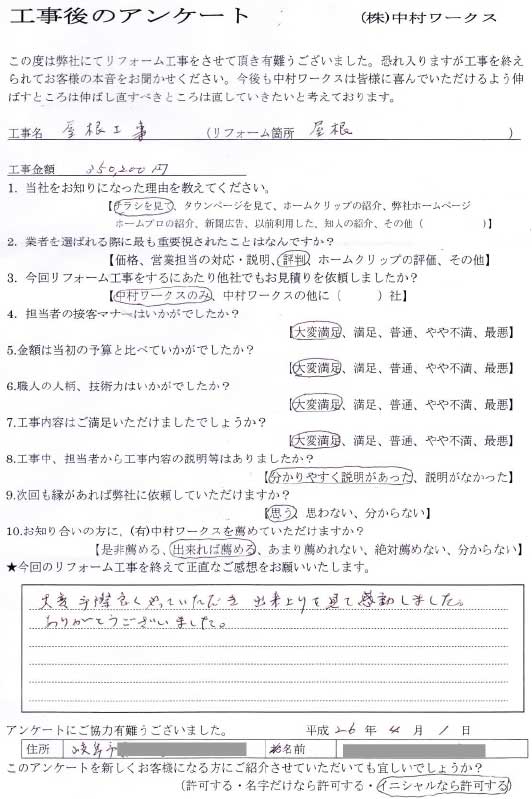 工事後のアンケート　(株)中村ワークス
この度は弊社にてリフォーム工事をさせて頂き有難うございました。恐れ入りますが工事を終え
られてお客様の本音をお聞かせください。今後も中村ワークスは皆様に喜んでいただけるよう伸
ばすところは伸ばし直すべきところは直していきたいと考えております。
工事名　屋根工事　(リフォーム箇所　屋根　)
工事金額　350,200円
1. 当社をお知りになった理由を教えてください。
【チラシを見て、タウンページを見て、ホームクリップの紹介、弊社ホームページ
ホームプロの紹介、新聞広告、以前利用した、知人の紹介、その他（　）】
2. 業者を選ばれる際に最も重要視されたことはなんですか？
【価格、営業担当の対応・説明、評判、ホームクリップの評価、その他】
3. 今回リフォーム工事をするにあたり他社でもお見積りを依頼しましたか？
【中村ワークスのみ、中村ワークスの他に（　）社】
4. 担当者の接客マナーはいかがでしたか？
【大変満足、満足、普通、やや不満、最悪】
5.金額は当初の予算と比べていかがでしたか？
【大変満足、満足、普通、やや不満、最悪】
6.職人の人柄、技術力はいかがでしたか？
【大変満足、満足、普通、やや不満、最悪】
7.工事内容はご満足いただけましたでしょうか？
【大変満足、満足、普通、やや不満、最悪】
8.工事中、担当者から工事内容の説明等はありましたか？
【分かりやすく説明があった、説明がなかった】
9.次回も縁があれば弊社に依頼していただけますか？
【思う、思わない、分からない】
10.お知り合いの方に、(有)中村ワークスを薦めていただけますか？
【是非薦める、出来れば薦める、あまり薦めれない、絶対薦めない、分からない】
★今回のリフォーム工事を終えて正直なご感想をお願いいたします。
大変手際良くやっていただき 出来上りを見て感動しました。
ありがとうございました。
アンケートにご協力有難うございました。　平成26年4月1日
住所　岐阜市　お名前
このアンケートを新しくお客様になる方にご紹介させていただいても宜しいでしょうか？
(許可する・名字だけなら許可する・イニシャルなら許可する)